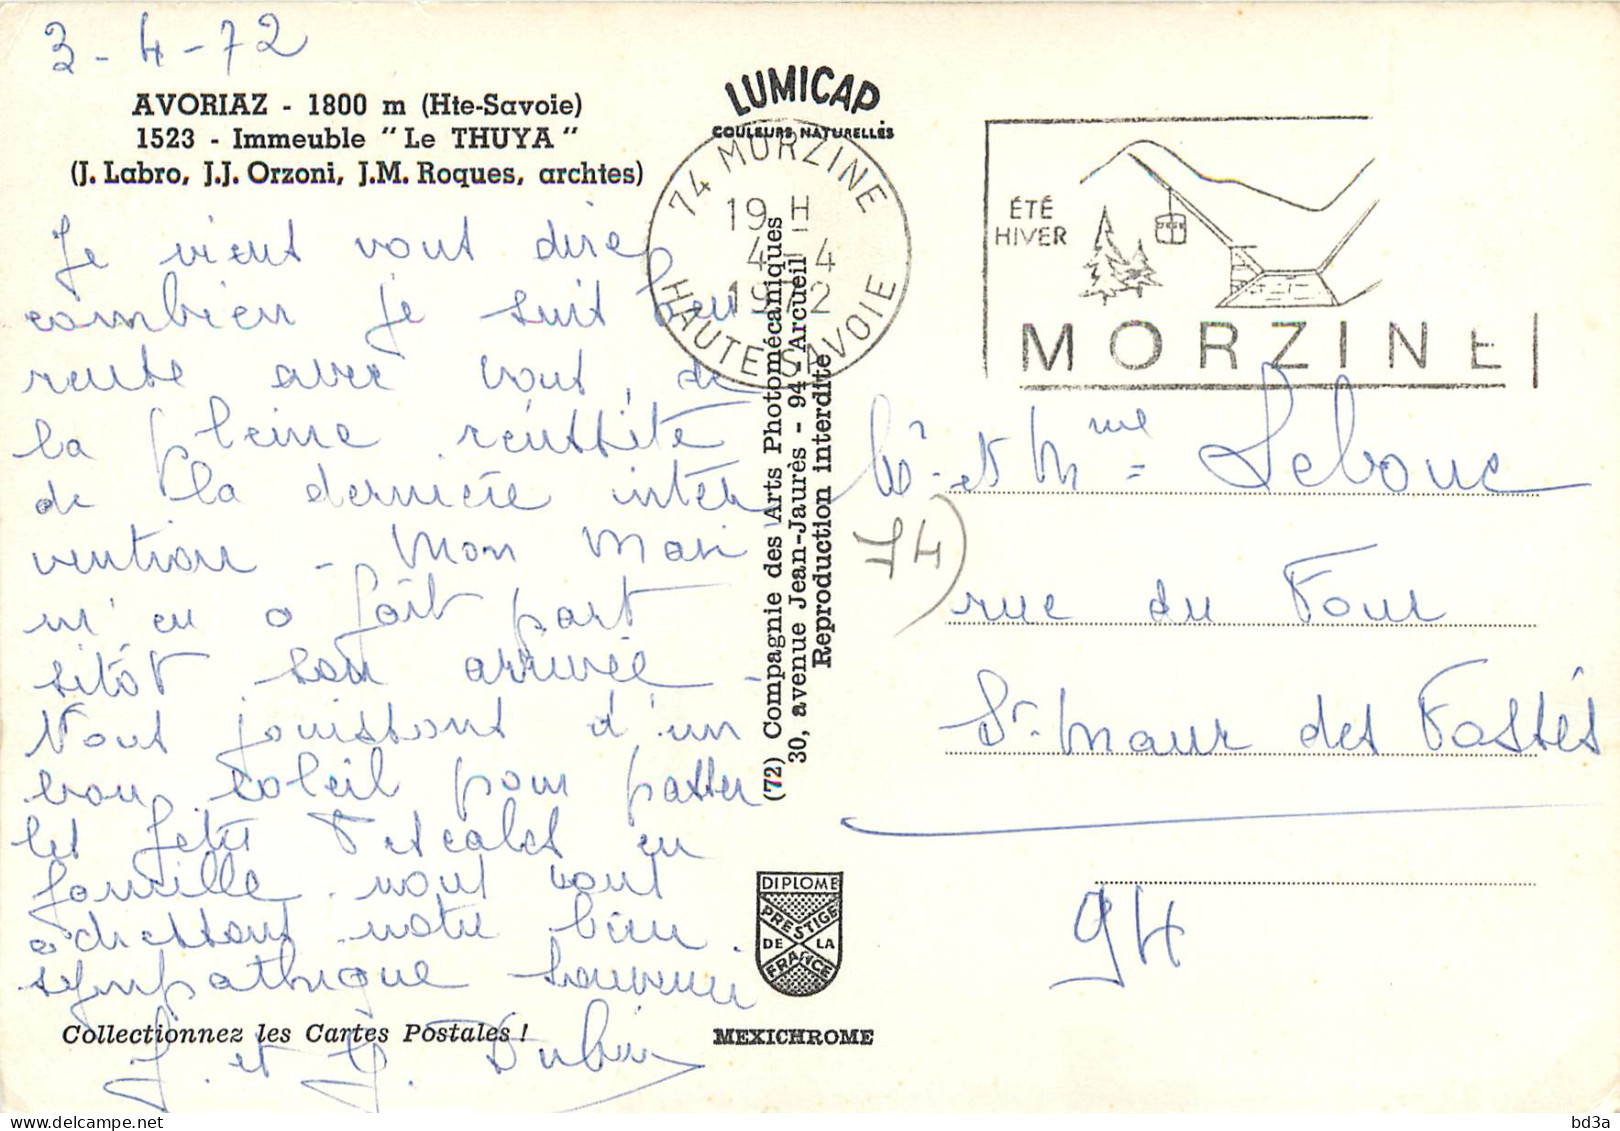 3-4-72
AVORIAZ - 1800 m (Hte-Savoie)
1523 - Immeuble "Le THUYA"
(J. Labro, J.J. Orzoni, J.M. Roques, archtes)
Je viens vous dire
combien je suis heu
reuse avec vous, de
la pleine réussite
de la dernière inter
vention - Mon Mari
m'en a fait part
sitôt son arrivée -
Nous jouissons d'un
bon soleil pour passer
les fêtes Pascales en
famille. nous vous
adressons notre bien
sympathique souvenir
Collectionnez les Cartes Postales !
J. et G.
LUMICAP
COULEURS NATURELLES
74 MORZINE
19 H
4-4
1972
HAUTE-SAVOIE
(72) Compagnie des Arts Photomécaniques
30, avenue Jean-Jaurès - 94 - Arcueil
Reproduction interdite
DIPLOME
PRESTIGE
DE LA
FRANCE
MEXICHROME
ÉTÉ
HIVER
MORZINE
Mr et Mme Lebouc
74)
rue du Four
St Maur des Fossés
94
delcampe.net
bd3a